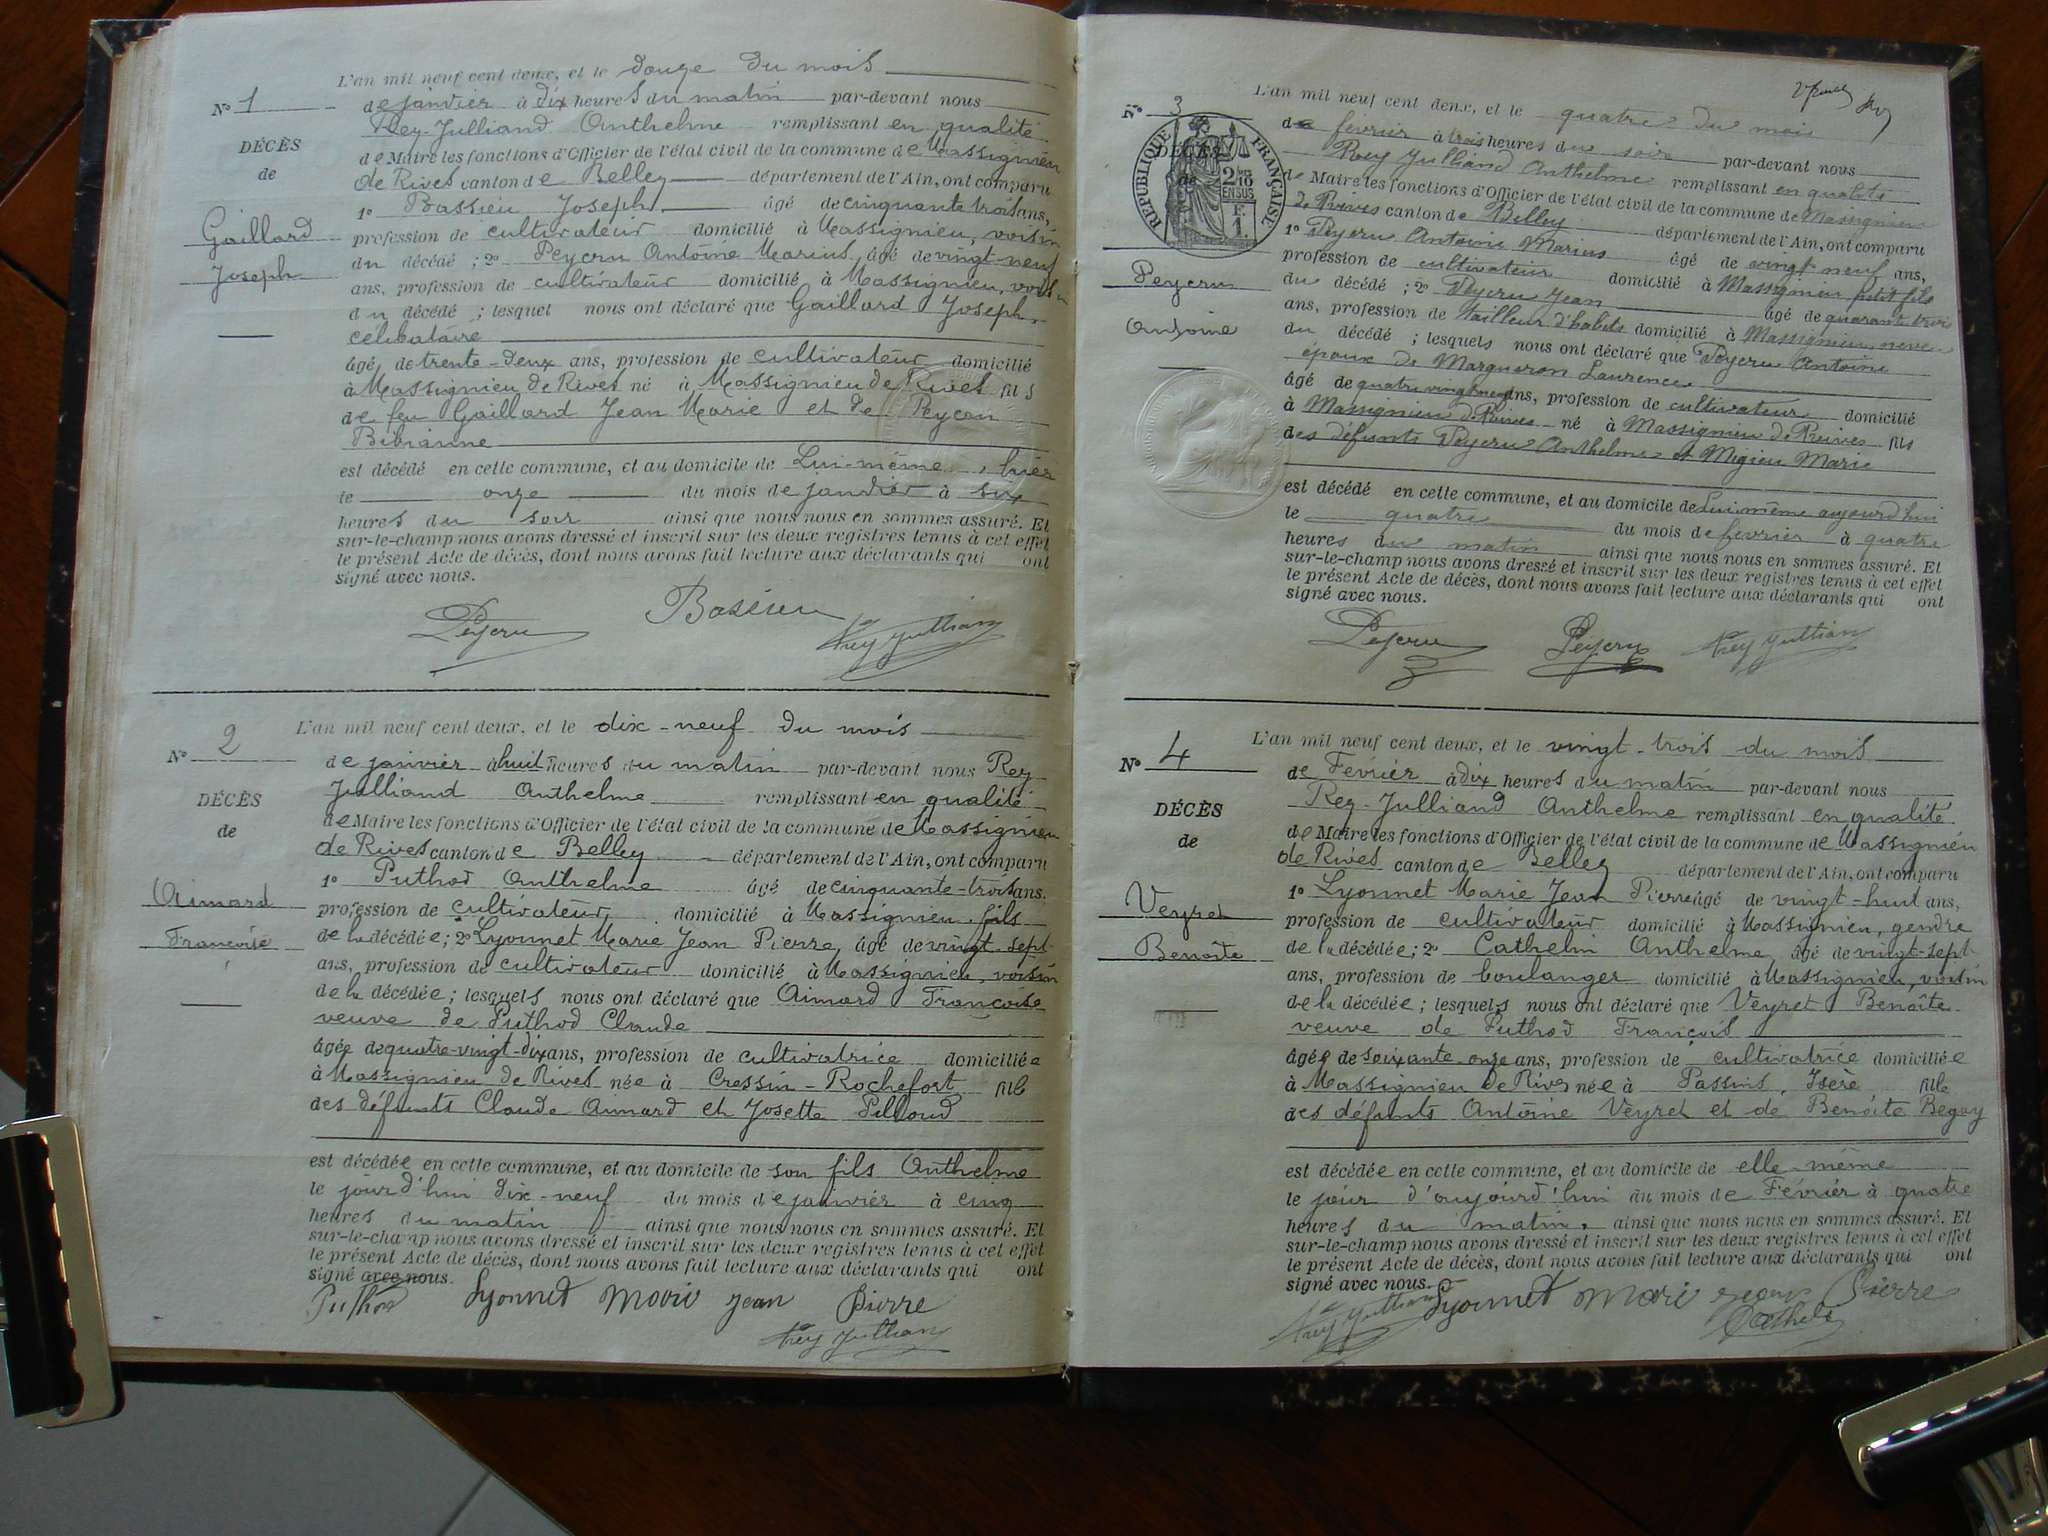 L'an mil neuf cent deux, et le douze du mois
N° 1
de janvier à dix heures du matin par-devant nous
Rey-Julliand Anthelme remplissant en qualité
DÉCÈS
de Maire les fonctions d'Officier de l'état civil de la commune de Massignieu
de
de Rives canton de Belley département de l'Ain, ont comparu
1° Bassieu Joseph âgé de cinquante trois ans,
Gaillard
profession de cultivateur domicilié à Massignieu, voisin
Joseph
du décédé ; 2° Peycru Antoine Marius, âgé de vingt-neuf
ans, profession de cultivateur domicilié à Massignieu, voisin
du décédé ; lesquel nous ont déclaré que Gaillard Joseph
célibataire
âgé de trente-deux ans, profession de cultivateur domicilié
à Massignieu de Rives né à Massignieu de Rives fils
de feu Gaillard Jean Marie et de Peycru
Bibianne
est décédé en cette commune, et au domicile de Lui-même, hier
le onze du mois de janvier à six
heures du soir ainsi que nous nous en sommes assuré. Et
sur-le-champ nous avons dressé et inscrit sur les deux registres tenus à cet effet
le présent Acte de décès, dont nous avons fait lecture aux déclarants qui ont
signé avec nous.
Peycru Bassieu Rey Jullian
L'an mil neuf cent deux, et le dix-neuf du mois
N° 2
de janvier à huit heures du matin par-devant nous Rey
Julliand Anthelme remplissant en qualité
DÉCÈS
de Maire les fonctions d'Officier de l'état civil de la commune de Massignieu
de
de Rives canton de Belley département de l'Ain, ont comparu
1° Puthod Anthelme âgé de cinquante-trois ans,
Aimard
profession de cultivateur, domicilié à Massignieu, fils
Françoise
de la décédée ; 2° Lyonnet Marie Jean Pierre, âgé de vingt-sept
ans, profession de cultivateur domicilié à Massignieu, voisin
de la décédée ; lesquels nous ont déclaré que Aimard Françoise
veuve de Puthod Claude
âgée de quatre-vingt-dix ans, profession de cultivatrice domiciliée
à Massignieu de Rives née à Cressin-Rochefort fille
des défunts Claude Aimard et Josette Pilloud
est décédée en cette commune, et au domicile de son fils Anthelme
le jourd'hui dix-neuf du mois de janvier à cinq
heures du matin ainsi que nous nous en sommes assuré. Et
sur-le-champ nous avons dressé et inscrit sur les deux registres tenus à cet effet
le présent Acte de décès, dont nous avons fait lecture aux déclarants qui ont
signé avec nous.
Puthod Lyonnet Marie Jean Pierre
Rey Jullian
L'an mil neuf cent deux, et le quatre du mois
N° 3
de février à trois heures du soir par-devant nous
Rey Julliand Anthelme remplissant en qualité
RÉPUBLIQUE FRANÇAISE
2/10 EN SUS
F. 1.
DÉCÈS
de
de Maire les fonctions d'Officier de l'état civil de la commune de Massignieu
de Rives canton de Belley département de l'Ain, ont comparu
1° Peycru Antoine Marius âgé de vingt neuf ans,
profession de cultivateur domicilié à Massignieu petit fils
Peycru
du décédé ; 2° Peycru Jean âgé de quarante trois
Antoine
ans, profession de tailleur d'habits domicilié à Massignieu neveu
du décédé ; lesquels nous ont déclaré que Peycru Antoine
époux de Margueron Laurence
âgé de quatre vingt neuf ans, profession de cultivateur domicilié
à Massignieu de Rives né à Massignieu de Rives fils
des défunts Peycru Anthelme et Megieu Marie
est décédé en cette commune, et au domicile de Lui même aujourd'hui
le quatre du mois de février à quatre
heures du matin ainsi que nous nous en sommes assuré. Et
sur-le-champ nous avons dressé et inscrit sur les deux registres tenus à cet effet
le présent Acte de décès, dont nous avons fait lecture aux déclarants qui ont
signé avec nous.
Peycru Peycru Rey Jullian
L'an mil neuf cent deux, et le vingt-trois du mois
N° 4
de Février à dix heures du matin par-devant nous
Rey-Julliand Anthelme remplissant en qualité
DÉCÈS
de Maire les fonctions d'Officier de l'état civil de la commune de Massignieu
de
de Rives canton de Belley département de l'Ain, ont comparu
1° Lyonnet Marie Jean Pierre âgé de vingt-huit ans,
Veyret
profession de cultivateur domicilié à Massignieu, gendre
Benoîte
de la décédée ; 2° Cathelin Anthelme âgé de vingt-sept
ans, profession de boulanger domicilié à Massignieu, voisin
de la décédée ; lesquels nous ont déclaré que Veyret Benoîte
veuve de Puthod François
âgée de soixante-onze ans, profession de cultivatrice domiciliée
à Massignieu de Rives née à Passins, Isère fille
des défunts Antoine Veyret et de Benoîte Begoy
est décédée en cette commune, et au domicile de elle-même
le jour d'aujourd'hui du mois de Février à quatre
heures du matin, ainsi que nous nous en sommes assuré. Et
sur-le-champ nous avons dressé et inscrit sur les deux registres tenus à cet effet
le présent Acte de décès, dont nous avons fait lecture aux déclarants qui ont
signé avec nous.
Rey Jullian Lyonnet Marie Jean Pierre
Cathelin